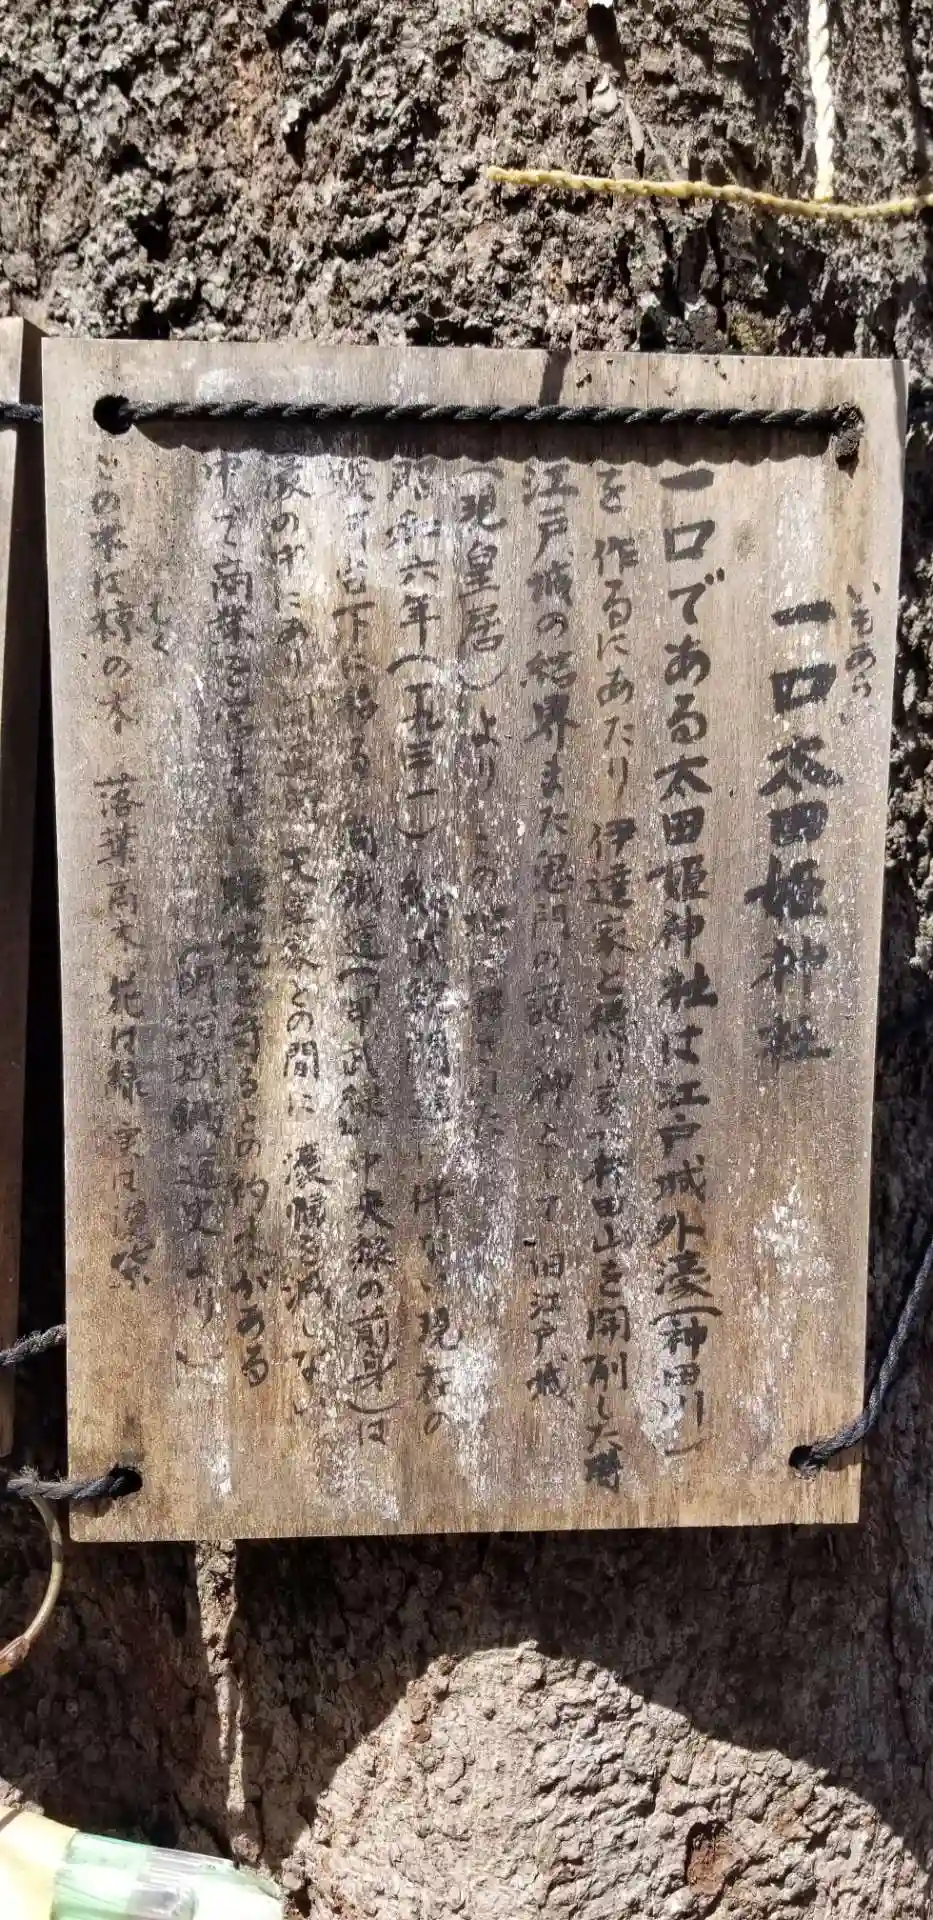 いもあらい
一口太田姫神社
一口である太田姫神社は江戸城外濠(神田川)
を作るにあたり 伊達家と徳川家が神田山を開削した時
江戸城の結界また鬼門の護り神として 旧江戸城
(現皇居)よりこの地に移された
昭和六年(一九三一)総武線開通に伴ない現在の
駿河台下に移る 甲武線 中央線の前身)は
の中にあり 開通時 との間に 濃
中で商業を営まない 焼を守るとの約束がある
明治期鉄道史より
むく
この木は椋の木 落葉高木 花は緑 実は濃紫